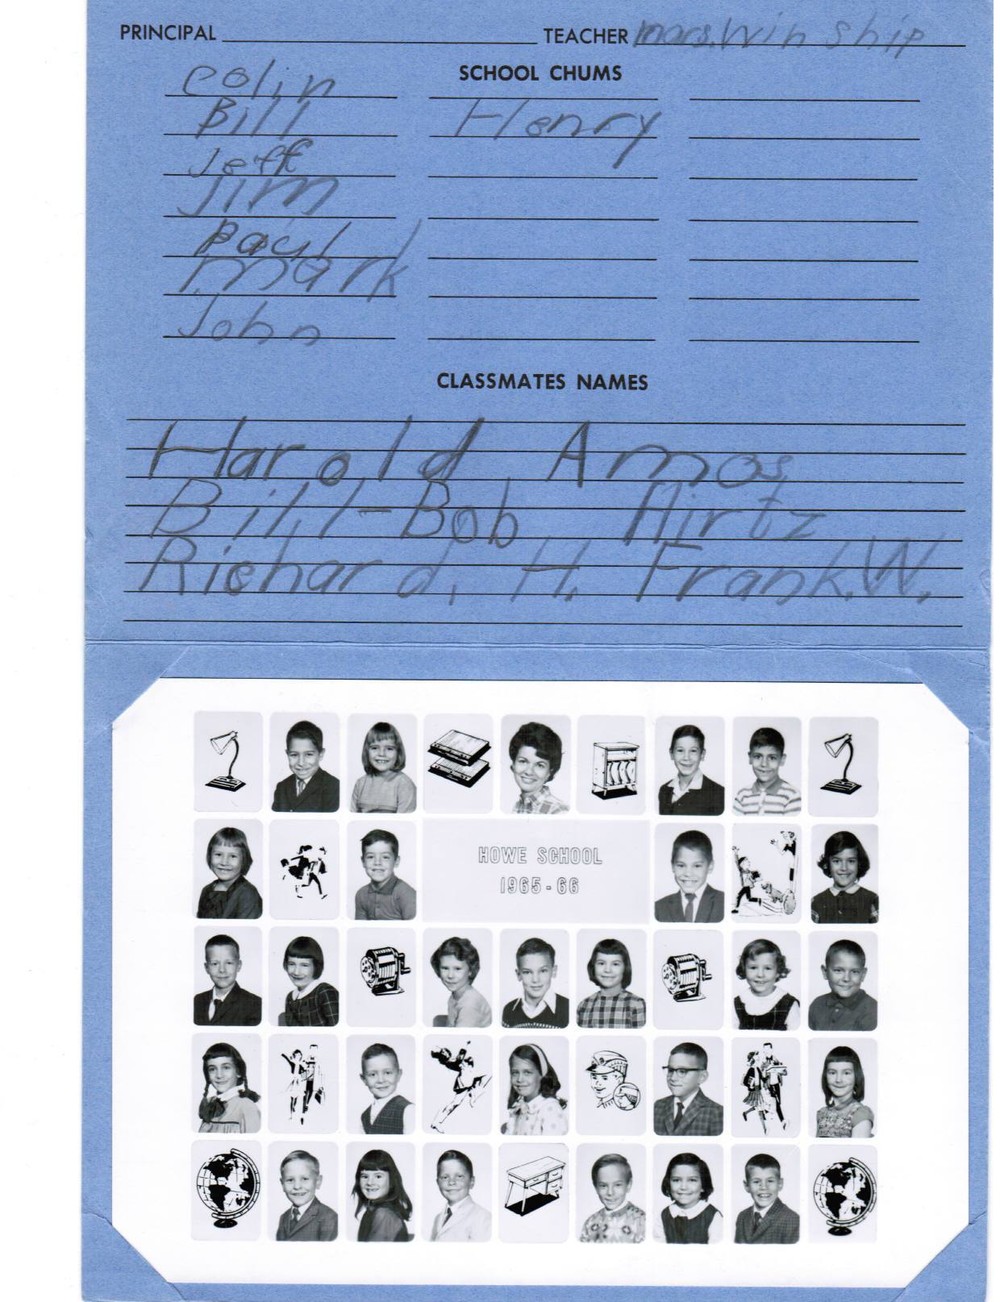 PRINCIPAL TEACHER mars. Win ship
SCHOOL CHUMS
Colin
Bill Henry
Jeff
Jim
Paul
Mark
John
CLASSMATES NAMES
Harold Amos
Bill-Bob Hirtz
Richard. H. Frank.W.
HOWE SCHOOL
1965-66